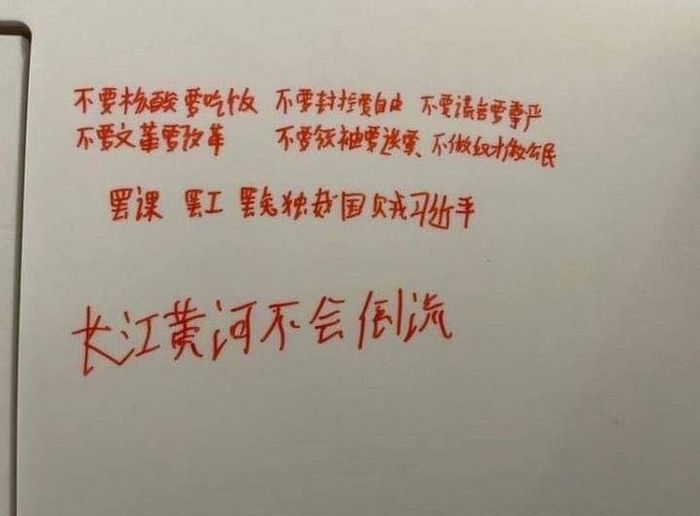 不要核酸要吃饭 不要封控要自由 不要谎言要尊严
不要文革要改革 不要领袖要选票、不做奴才做公民
罢课 罢工 罢免独裁国贼习近平
长江黄河不会倒流